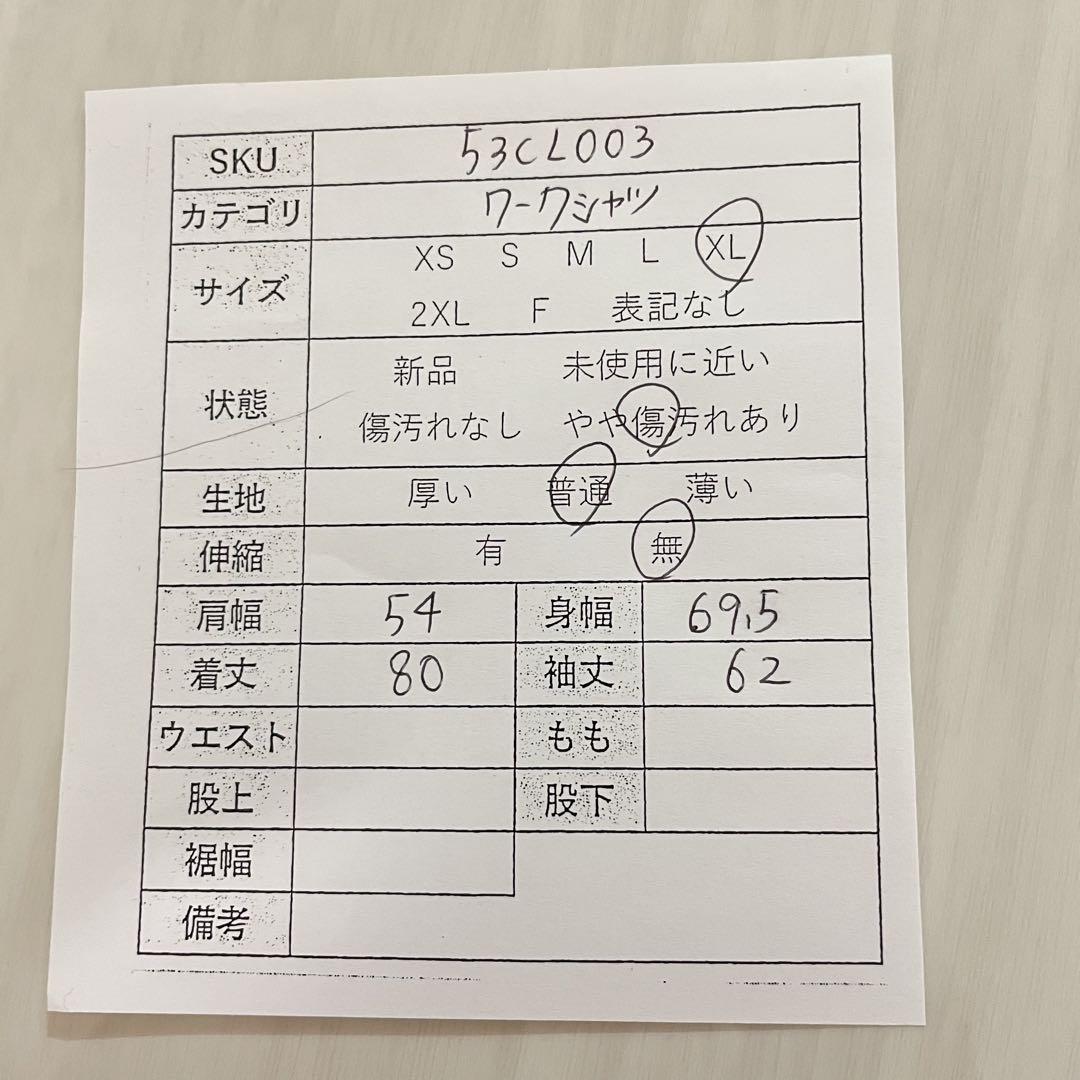 SKU 53CL003
カテゴリ ワークシャツ
サイズ XS S M L XL
2XL F 表記なし
状態 新品 未使用に近い
傷汚れなし やや傷汚れあり
生地 厚い 普通 薄い
伸縮 有 無
肩幅 54 身幅 69.5
着丈 80 袖丈 62
ウエスト もも
股上 股下
裾幅
備考